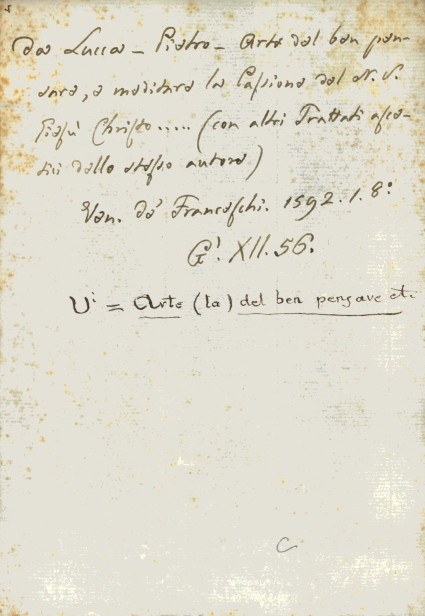 Da Lucca - Pietro - Arte del ben pen-
sare, e meditare la Passione del N. S.
Giesù Christo..... (con altri Trattati asce-
tici dello stesso autore)
Ven. de' Franceschi. 1592. 1. 8:
G'. XII. 56.
Vi = Arte (la) del ben pensave etc.
C